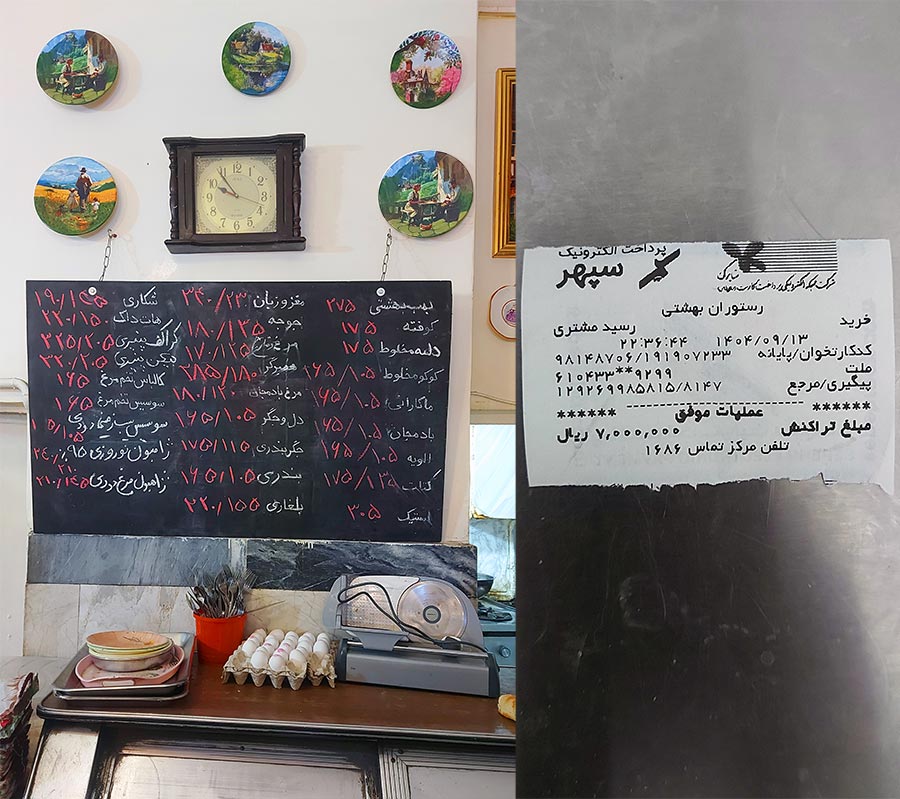 بمب بهشتی ۲۷۵
کوفته ۱۷۵
دلمه مخلوط ۱۷۵
کوکو مخلوط ۱۶۵/۱۰۵
ماکارانی ۱۶۵/۱۰۵
بادمجان ۱۶۵/۱۰۵
الویه ۱۶۵/۱۰۵
کتلت ۱۷۵/۱۲۵
استیک ۳۰۵
مغز و زبان
جوجه ۱۸۰/۱۳۵
مرغ و قارچ ۱۷۰/۱۲۵
همبرگر ۲۸۵/۱۸۰
مرغ بادمجان ۱۸۰/۱۳۰
دل و جگر ۱۶۵/۱۰۵
جگر بندری ۱۷۵/۱۱۵
بندری ۱۶۵/۱۰۵
بلغاری ۲۲۰/۱۵۵
شکاری ۱۹۰/۱۴۵
هات داگ ۲۲۰/۱۵۰
پنیری ۲۷۵/۲۰۵
چیکن پنیری ۳۲۰/۲۰۵
کالباس تخم مرغ ۱۶۵
سوسیس تخم مرغ ۱۶۵
سوسیس سیب زمینی دودی
ژامبون نوروزی
ژامبون مرغ دودی
پرداخت الکترونیک
سپهر
رستوران بهشتی
خرید رسید مشتری
۱۴۰۴/۰۹/۱۳ ۲۲:۳۶:۴۴
کدکارتخوان/پایانه ۹۸۱۴۸۷۰۶/۱۹۱۹۰۷۲۳۳
ملت ۶۱۰۴۳۳**۹۲۹۹
پیگیری/مرجع ۱۲۹۲۶۹۹۸۵۸۱۵/۸۱۴۷
****** عملیات موفق ******
مبلغ تراکنش ۷,۰۰۰,۰۰۰ ریال
تلفن مرکز تماس ۱۶۸۶